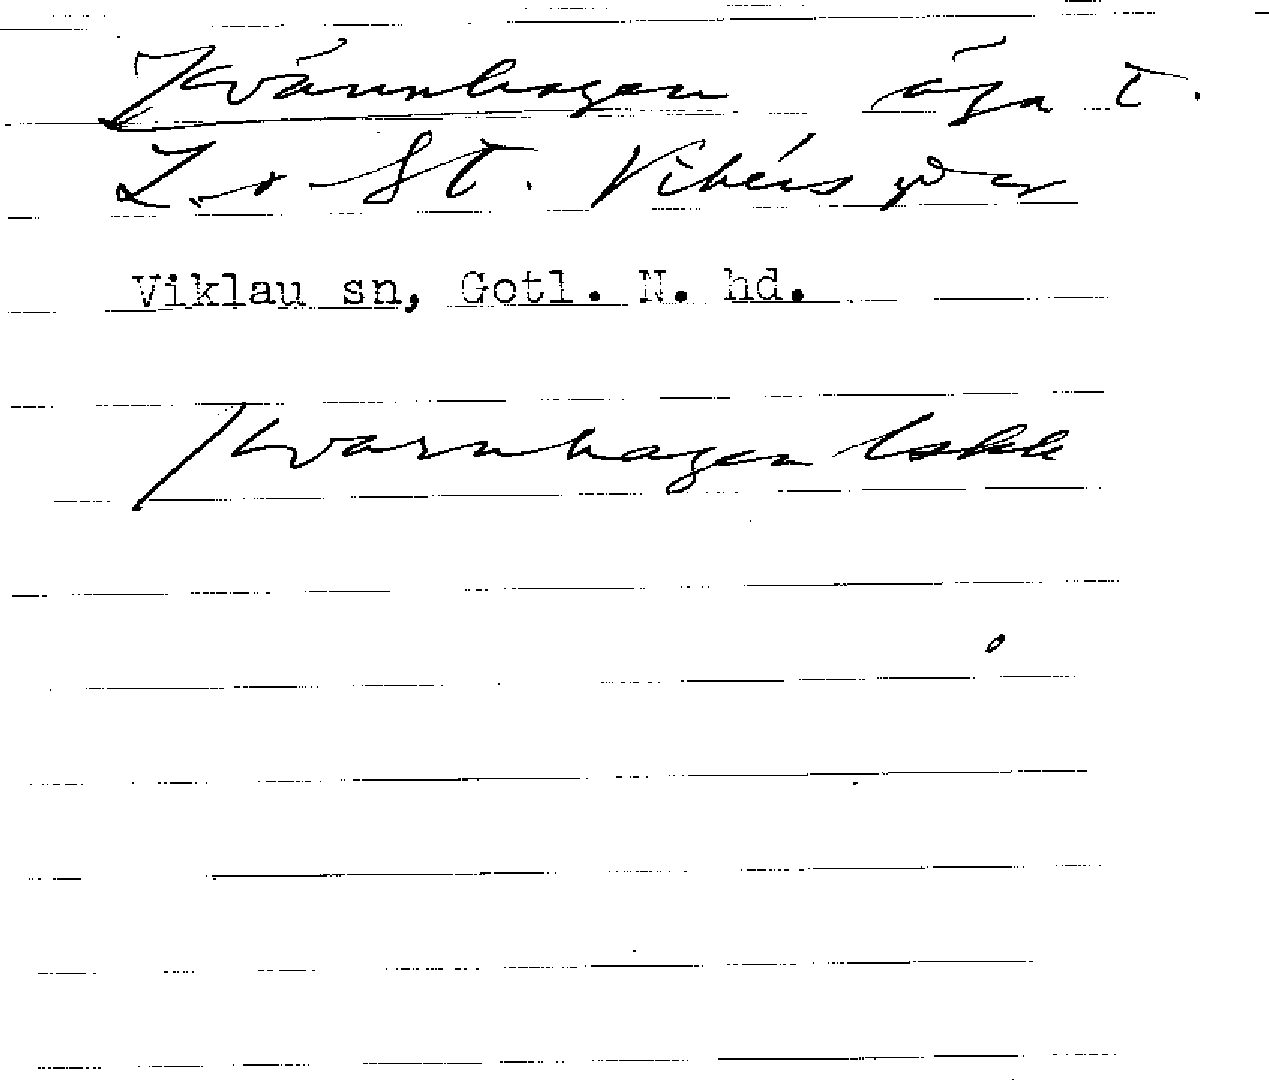 Kvánnhagen äga t.
L. o St. Vikers
Viklau sn, Gotl. N. hd.
Kvarnhagen